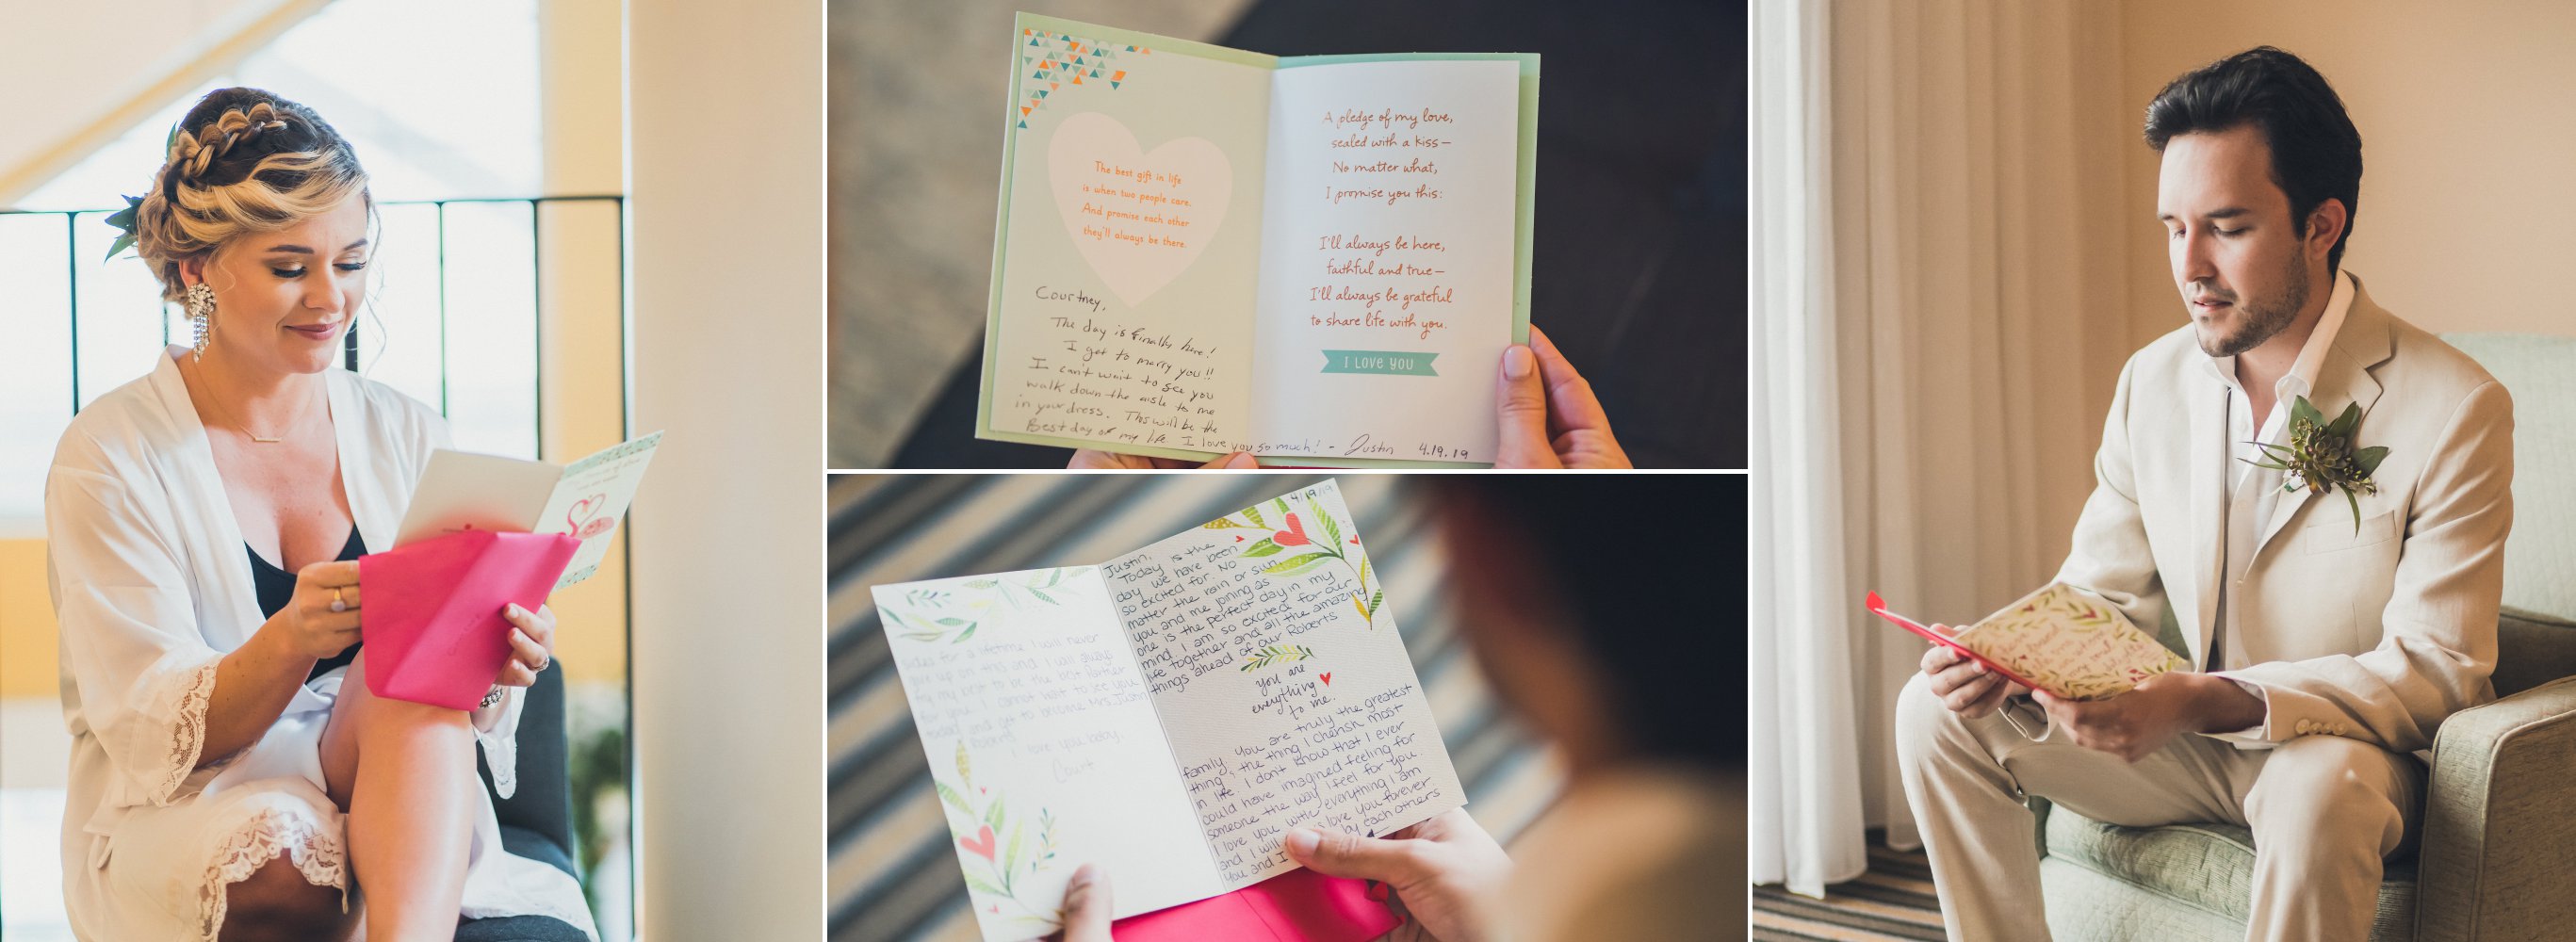 The best gift in life
is when two people care.
And promise each other
they'll always be there.
Courtney,
The day is finally here!
I get to marry you!!
I can't wait to see you
walk down the aisle to me
in your dress. This will be the
Best day of my life. I love you so much! - Justin 4.19.19
A pledge of my love,
sealed with a kiss—
No matter what,
I promise you this:
I'll always be here,
faithful and true—
I'll always be grateful
to share life with you.
I Love you
4/19/19
Justin,
Today is the
day we have been
so excited for. No
matter the rain or sun,
you and me joining as
one is the perfect day in my
mind. I am so excited for our
life together and all the amazing
things ahead of our Roberts
you are
everything
to me.
family. You are truly the greatest
thing, the thing I cherish most
in life. I don't know that I ever
could have imagined feeling for
someone the way I feel for you.
I love you with everything I am
and I will love you forever.
You and I by each others
sides for a lifetime. I will never
give up on this and I will always
try my best to be the best partner
for you. I cannot wait to see you
today and get to become Mrs. Justin
I love you baby
Court